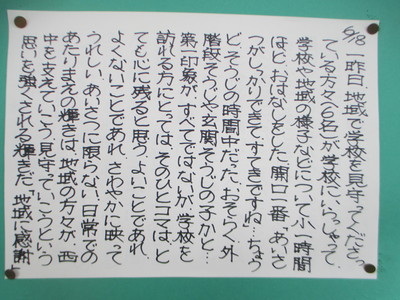 6/8 一昨日、地域で学校を見守ってくださっ
ている方々(6名)が学校にいらっしゃって、
学校や地域の様子などについて小一時間
ほどおはなしをした。開口一番「あいさ
つがしっかりできて、すてきですね」…ちょう
どそうじの時間中だった。おそらく、外
階段そうじや玄関そうじの子かと…
第一印象が、すべてではないが、学校を
訪れる方にとっては、そのひとコマは、と
ても心に残ると思う。よいことであれ、
よくないことであれ。さわやかに映って
うれしい。あいさつに限らない、日常での
あたりまえの輝きは、地域の方々が、西
中を支えていこう、見守っていこうという
思いを強くされる輝きだ。「地域に感謝」